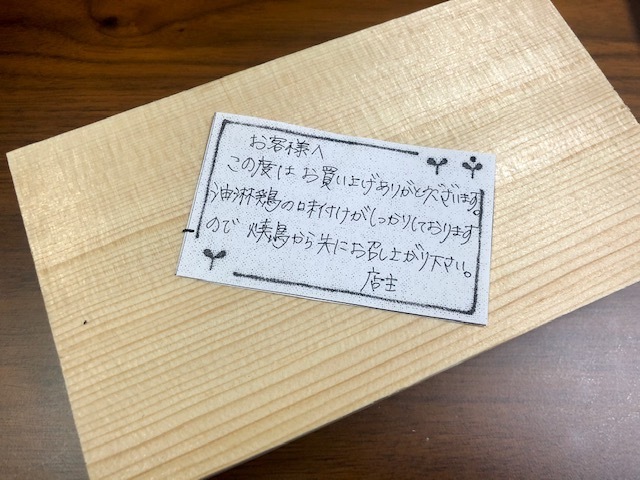 お客様へ
この度は お買い上げありがとうございます。
油淋鶏の味付けがしっかりしております
ので 焼鳥から先にお召し上がり下さい。
店主